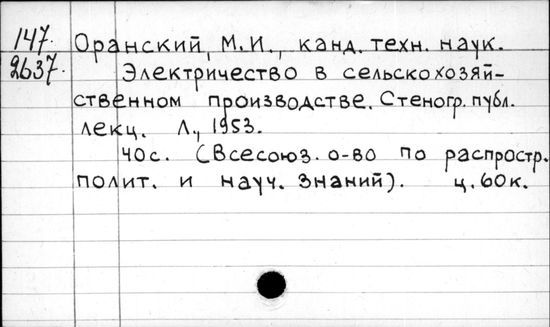 147. Оранский, М.И., канд. техн. наук.
2637. Электричество в сельскохозяй-
ственном производстве. Стеногр. публ.
лекц. Л., 1953.
40с. (Всесоюз. о-во по распростр.
полит. и науч. знаний). ц. 60к.